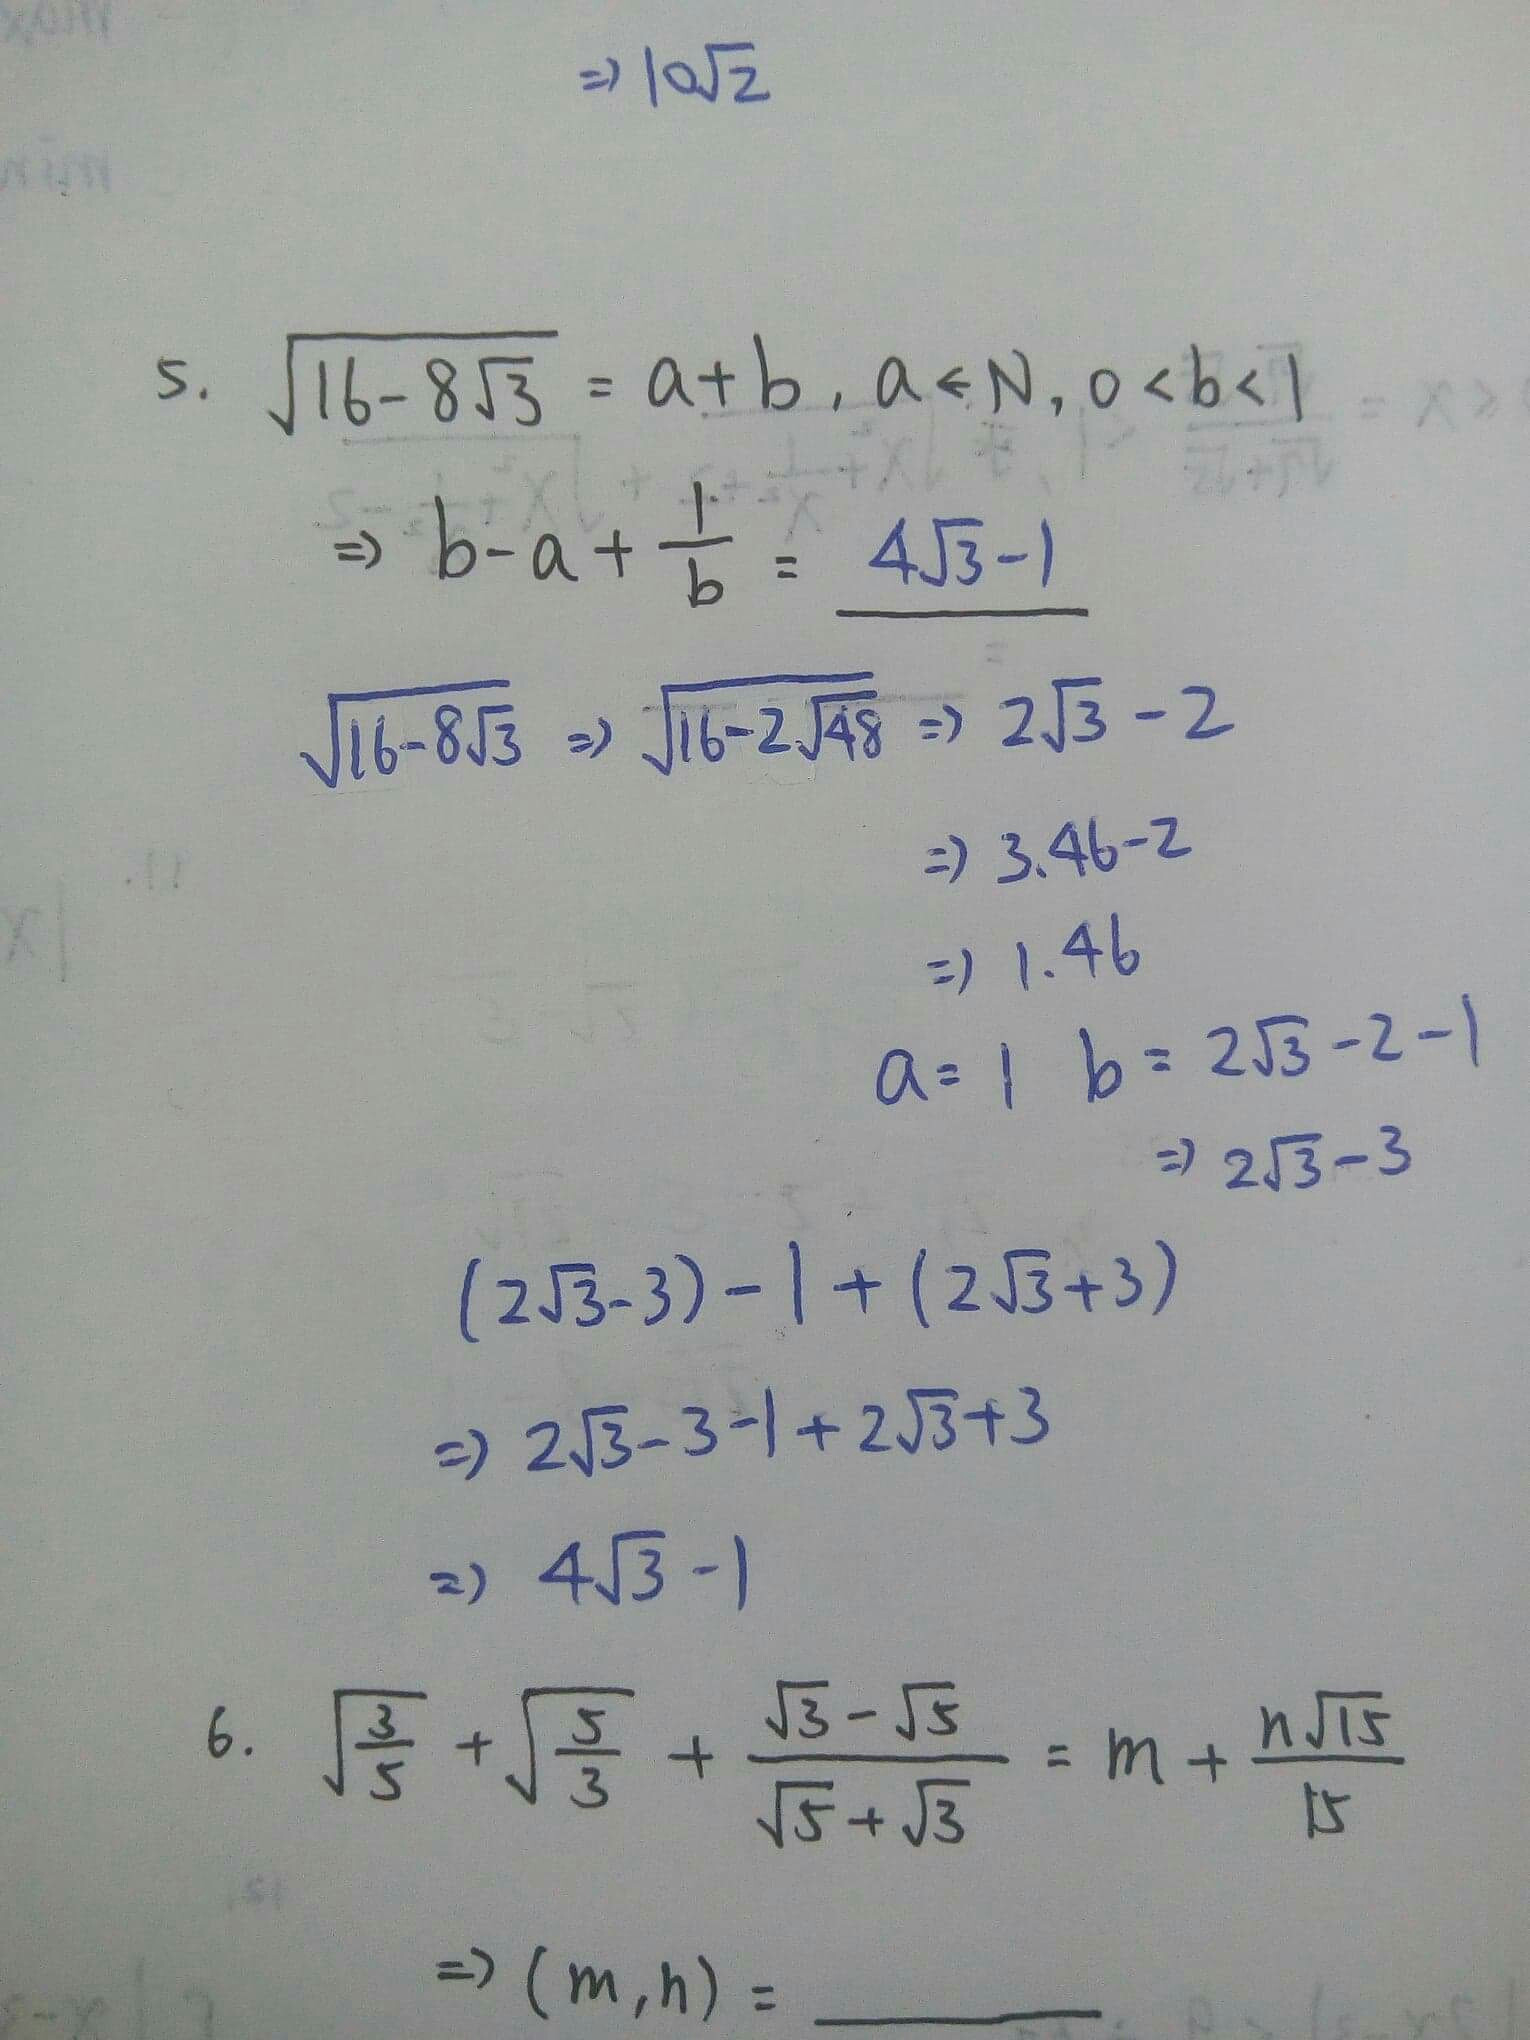 ⇒ 10√2
5. √(16-8√3) = a+b, a∈N, 0<b<1
⇒ b-a+1/b = 4√3-1
√(16-8√3) ⇒ √(16-2√48) ⇒ 2√3-2
⇒ 3.46-2
⇒ 1.46
a=1 b=2√3-2-1
⇒ 2√3-3
(2√3-3)-1+(2√3+3)
⇒ 2√3-3-1+2√3+3
⇒ 4√3-1
6. √(3/5) + √(5/3) + (√3-√5)/(√5+√3) = m + n√15/15
⇒ (m,n) = ____